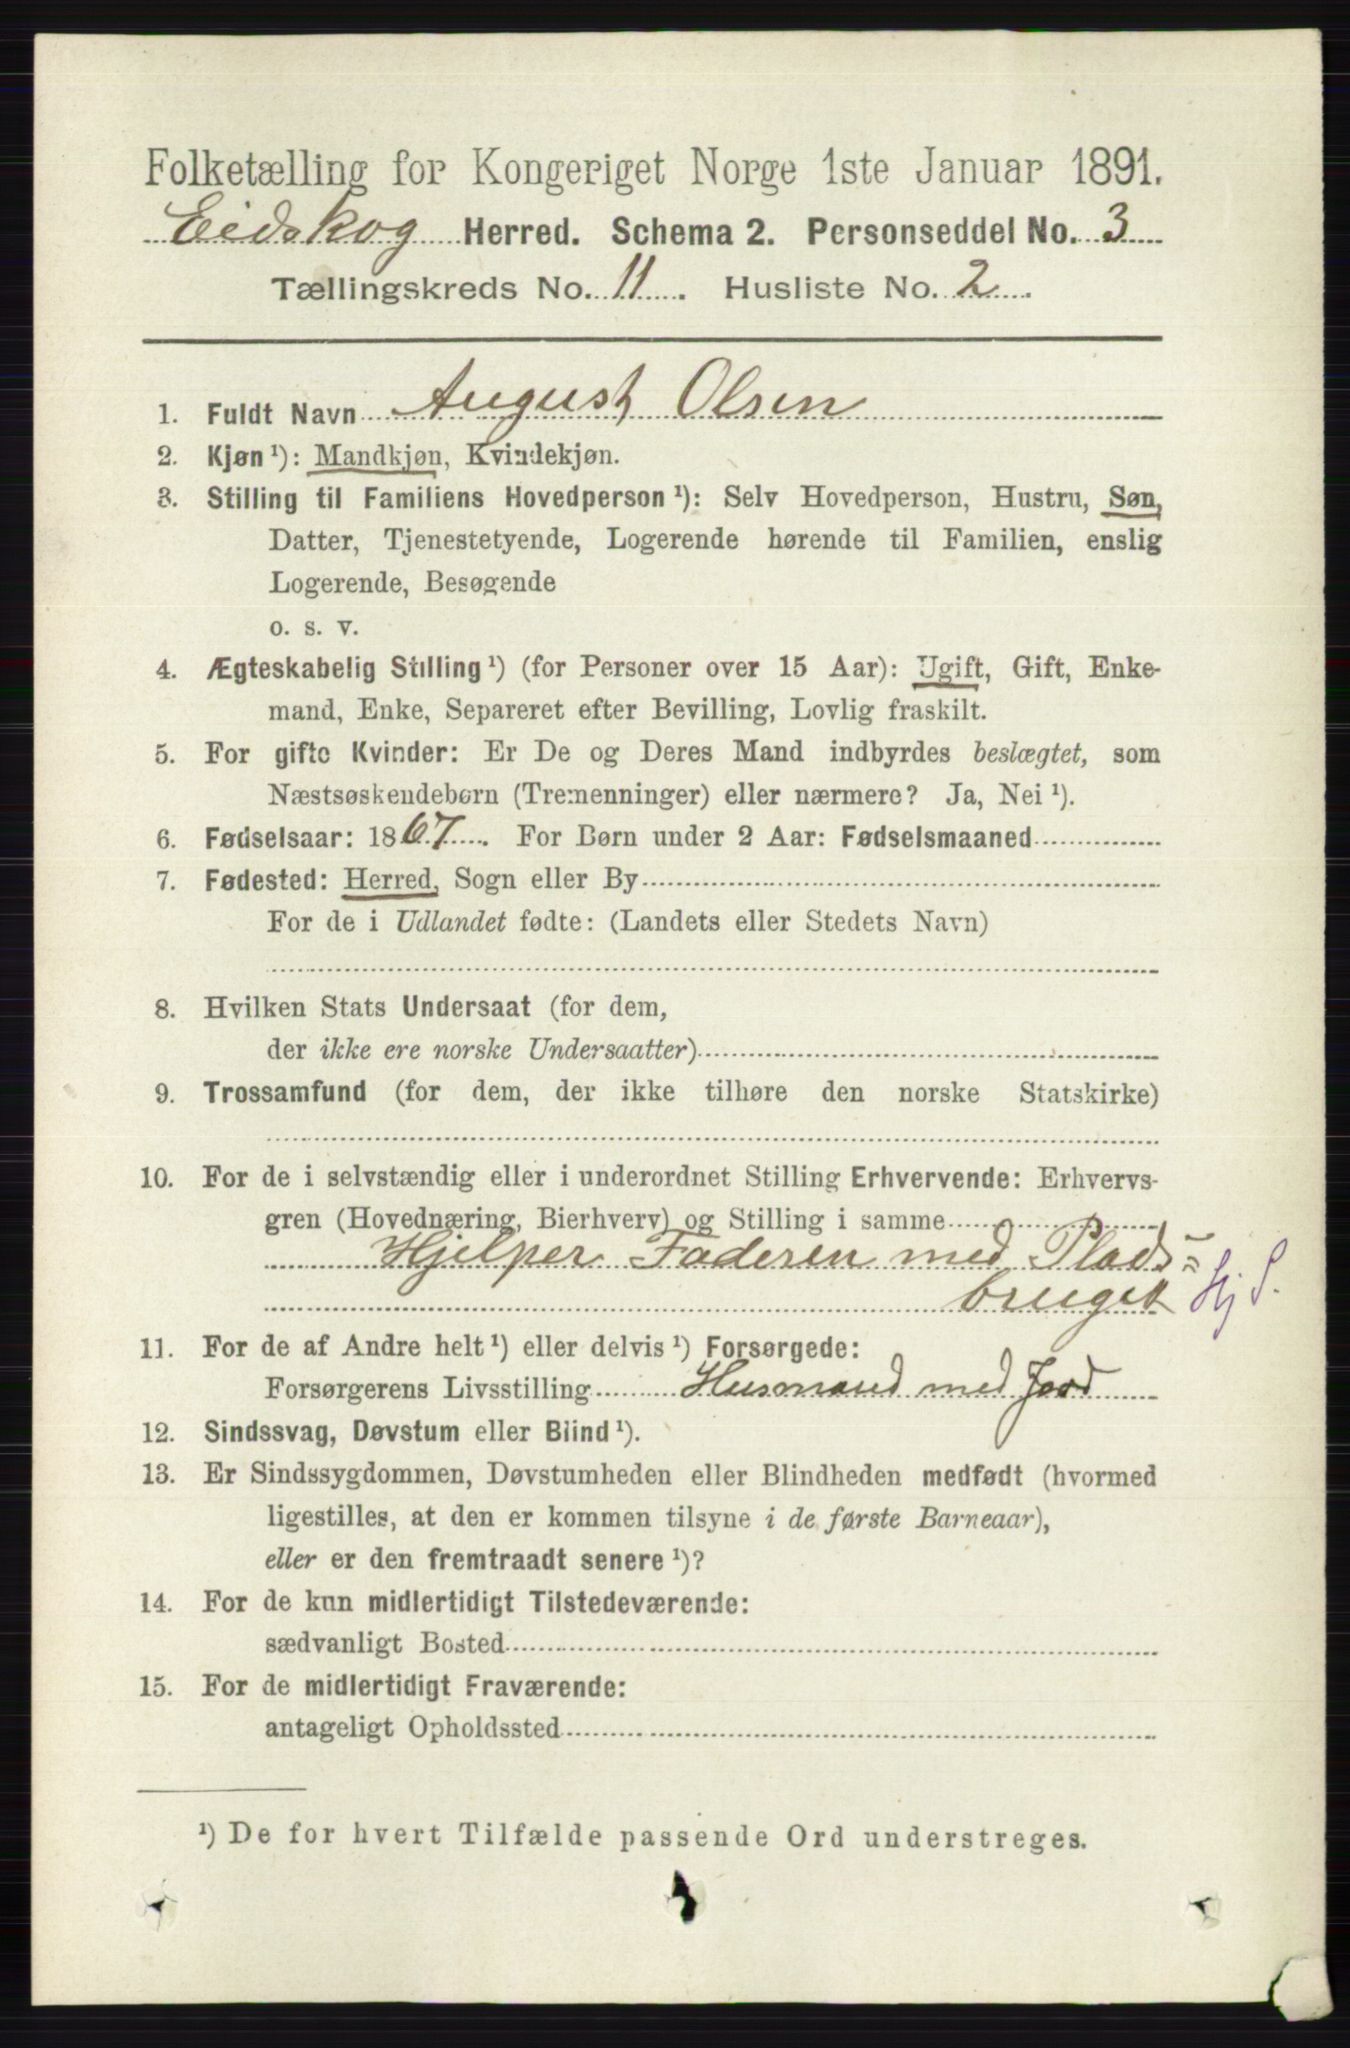 Folketælling for Kongeriget Norge 1ste Januar 1891.
Eidskog Herred. Schema 2. Personseddel No. 3
Tællingskreds No. 11. Husliste No. 2
1. Fuldt Navn August Olsen
2. Kjøn ¹): Mandkjøn, Kvindekjøn.
3. Stilling til Familiens Hovedperson ¹): Selv Hovedperson, Hustru, Søn,
Datter, Tjenestetyende, Logerende hørende til Familien, enslig
Logerende, Besøgende
o. s. v.
4. Ægteskabelig Stilling ¹) (for Personer over 15 Aar): Ugift, Gift, Enke-
mand, Enke, Separeret efter Bevilling, Lovlig fraskilt.
5. For gifte Kvinder: Er De og Deres Mand indbyrdes beslægtet, som
Næstsøskendebørn (Tremenninger) eller nærmere? Ja, Nei ¹).
6. Fødselsaar: 1867. For Børn under 2 Aar: Fødselsmaaned
7. Fødested: Herred, Sogn eller By
For de i Udlandet fødte: (Landets eller Stedets Navn)
8. Hvilken Stats Undersaat (for dem,
der ikke ere norske Undersaatter)
9. Trossamfund (for dem, der ikke tilhøre den norske Statskirke)
10. For de i selvstændig eller i underordnet Stilling Erhvervende: Erhvervs-
gren (Hovednæring, Bierhverv) og Stilling i samme
Hjelper Faderen med Plads=
bruget Hj S.
11. For de af Andre helt ¹) eller delvis ¹) Forsørgede:
Forsørgerens Livsstilling Husmand med Jord
12. Sindssvag, Døvstum eller Blind ¹).
13. Er Sindssygdommen, Døvstumheden eller Blindheden medfødt (hvormed
ligestilles, at den er kommen tilsyne i de første Barneaar),
eller er den fremtraadt senere ¹)?
14. For de kun midlertidigt Tilstedeværende:
sædvanligt Bosted
15. For de midlertidigt Fraværende:
antageligt Opholdssted
¹) De for hvert Tilfælde passende Ord understreges.